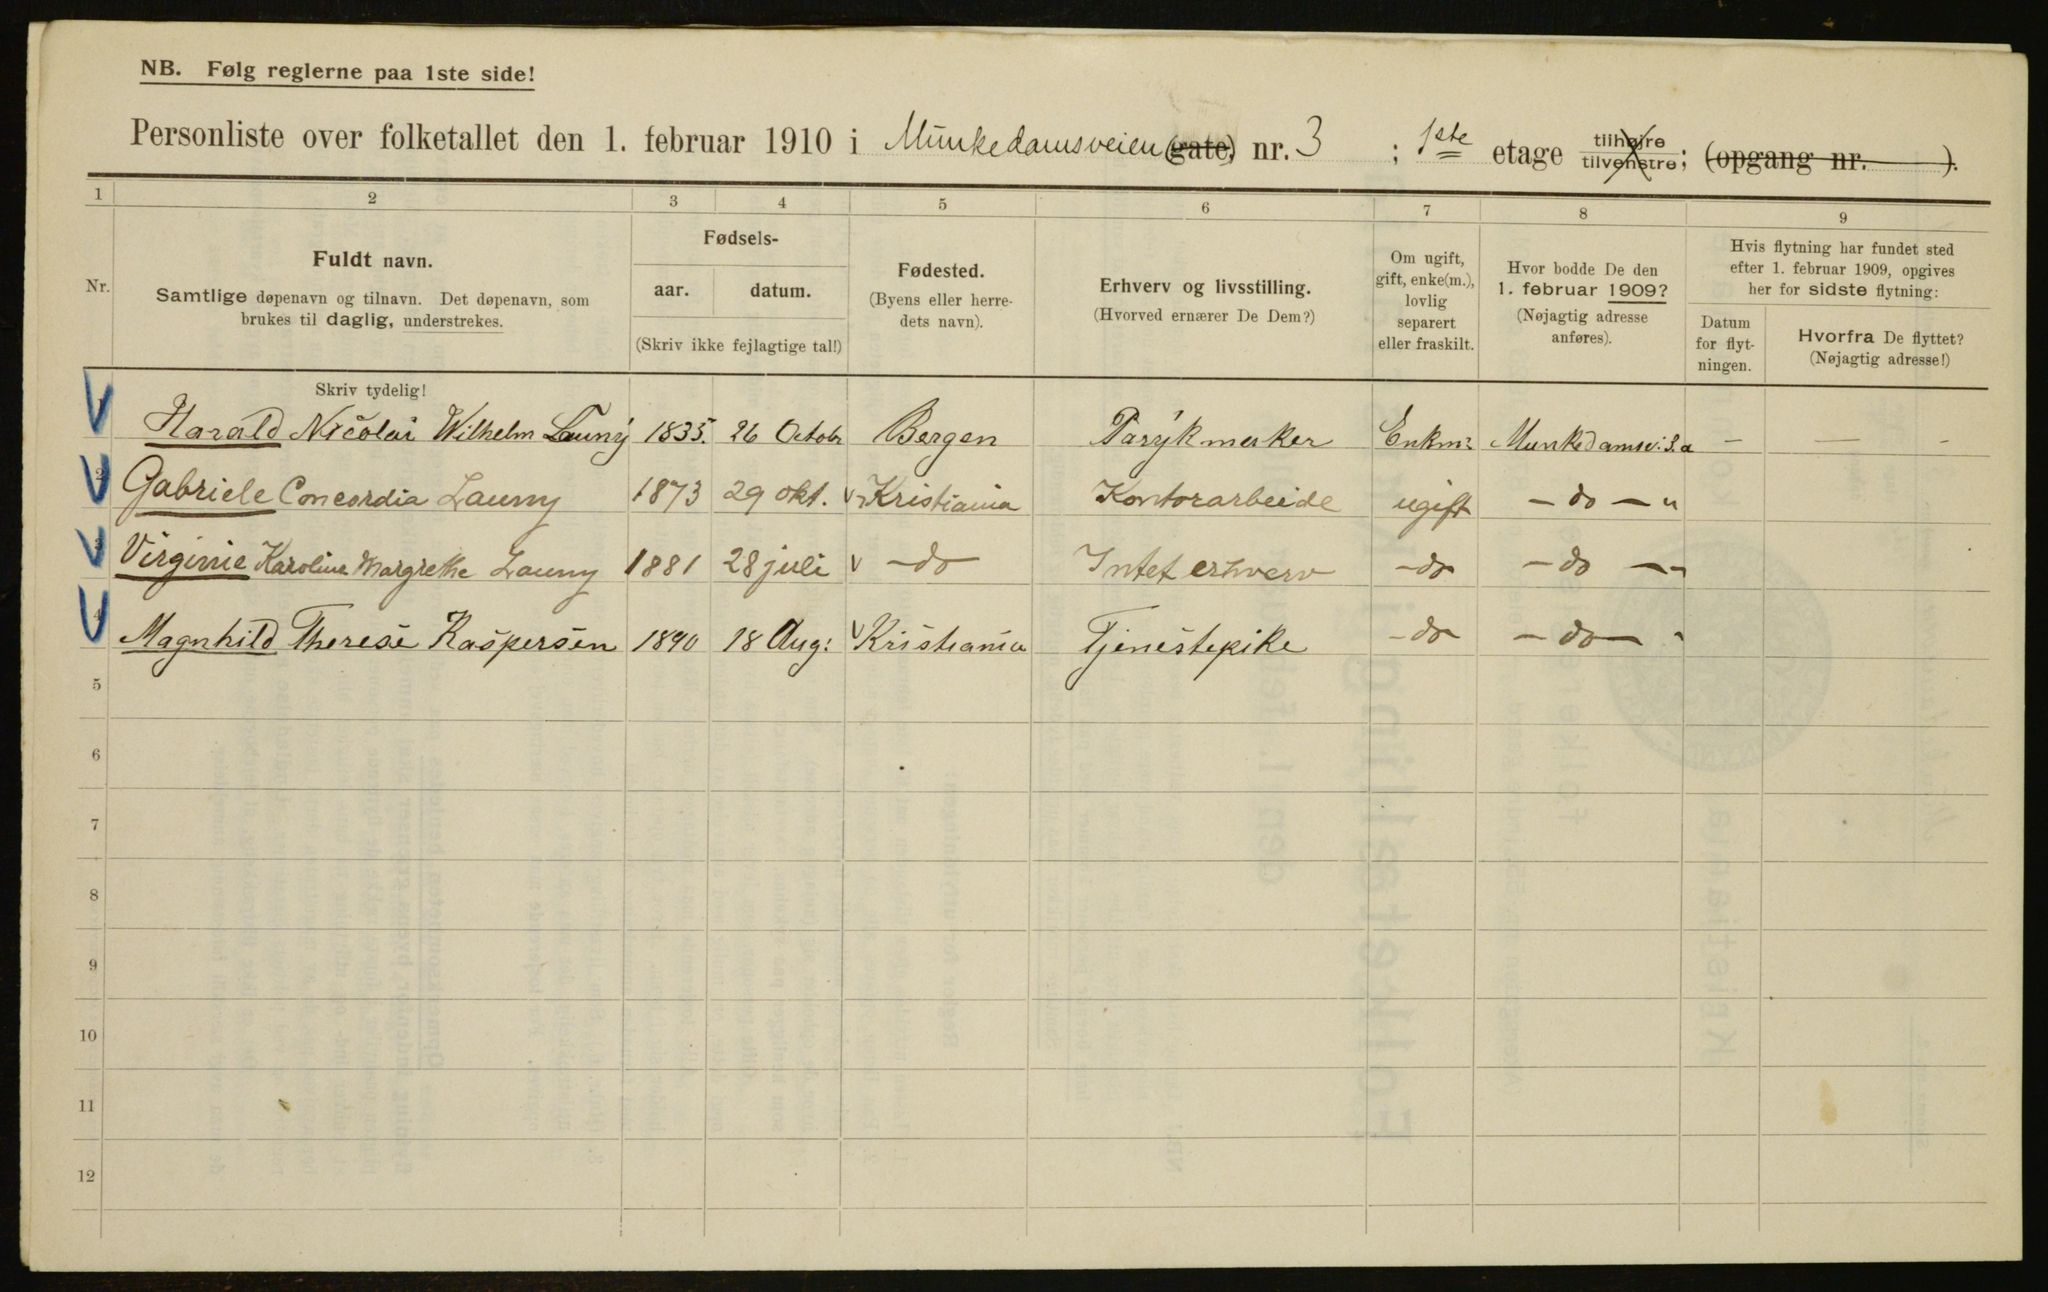 NB. Følg reglerne paa 1ste side!
Personliste over folketallet den 1. februar 1910 i Munkedamsveien (gate) nr. 3 ; 1ste etage tilhøjre tilvenstre; (opgang nr. ).
1 2 3 4 5 6 7 8 9
Nr.
Fuldt navn.
Samtlige døpenavn og tilnavn. Det døpenavn, som
brukes til daglig, understrekes.
Skriv tydelig!
Fødsels-
aar. datum.
(Skriv ikke fejlagtige tal!)
Fødested.
(Byens eller herre-
dets navn).
Erhverv og livsstilling.
(Hvorved ernærer De Dem?)
Om ugift,
gift, enke(m.),
lovlig
separert
eller fraskilt.
Hvor bodde De den
1. februar 1909?
(Nøjagtig adresse
anføres).
Hvis flytning har fundet sted
efter 1. februar 1909, opgives
her for sidste flytning:
Datum
for flyt-
ningen.
Hvorfra De flyttet?
(Nøjagtig adresse!)
1 Harald Nicolai Wilhelm Launy 1835. 26 Octobr Bergen Parykmaker Enkm: Munkedamsv: 3.a — — -
2 Gabriele Concordia Launy 1873 29 okt. Kristiania Kontorarbeide ugift - do - "
3 Virginie Karoline Margrethe Launy 1881 28 juli - do Intet erhverv - do - do - "
4 Magnhild Therese Kaspersen 1890 18 Aug: Kristiania Tjenestepike - do - do - "
5
6
7
8
9
10
11
12